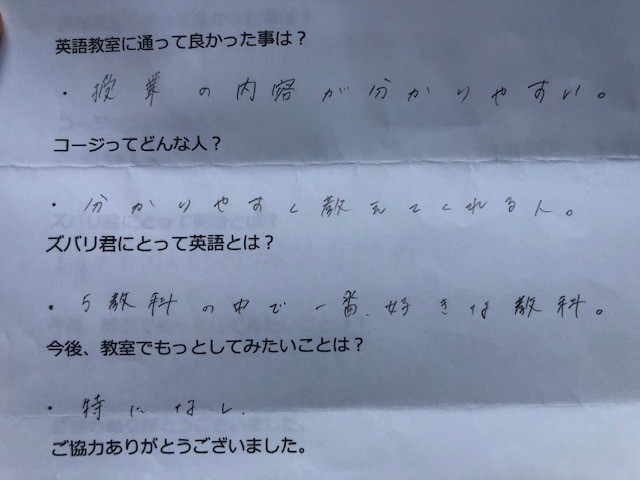 英語教室に通って良かった事は？
・授業の内容が分かりやすい。
コージってどんな人？
・分かりやすく教えてくれる人。
ズバリ君にとって英語とは？
・5教科の中で一番好きな教科。
今後、教室でもっとしてみたいことは？
・特になし.
ご協力ありがとうございました。